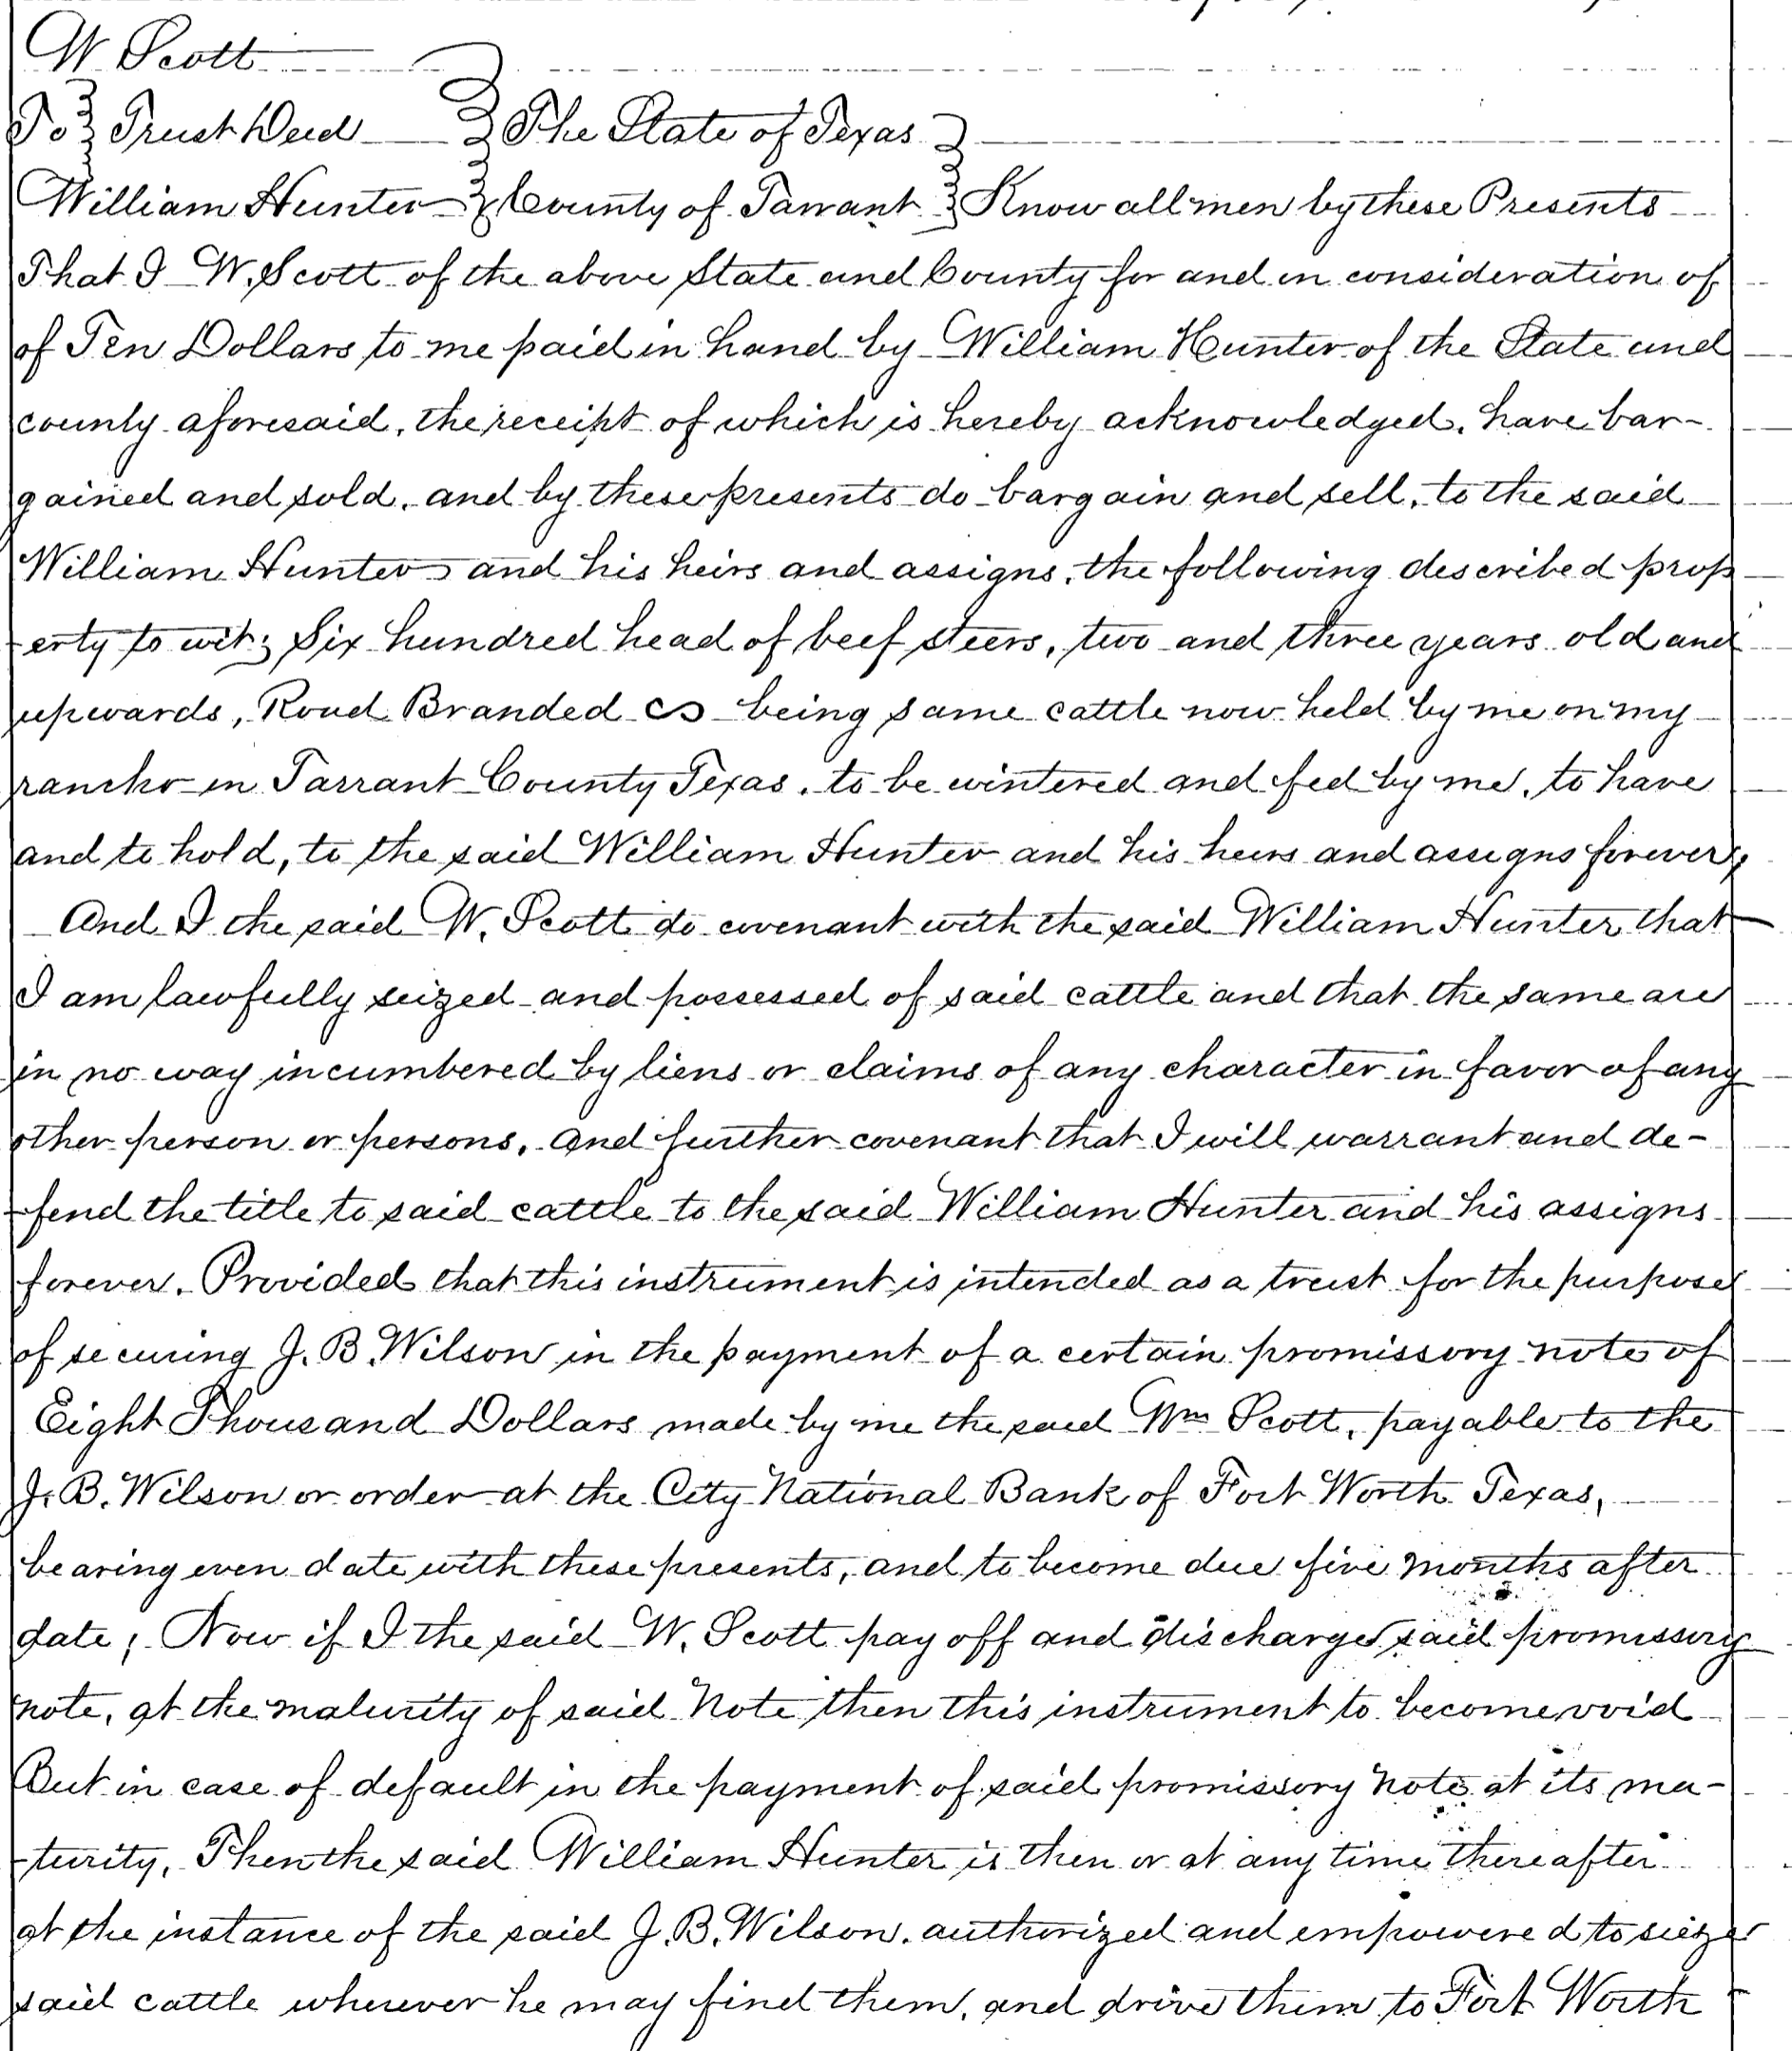 W Scott
To } Trust Deed } The State of Texas }
William Hunter } County of Tarrant } Know all men by these Presents
That I W. Scott of the above State and County for and in consideration of
of Ten Dollars to me paid in hand by William Hunter of the State and
county aforesaid, the receipt of which is hereby acknowledged, have bar-
gained and sold, and by these presents do bargain and sell, to the said
William Hunter and his heirs and assigns, the following described prop
erty to wit; Six hundred head of beef steers, two and three years old and
upwards, Road Branded being same cattle now held by me on my
rancho in Tarrant County Texas, to be wintered and fed by me, to have
and to hold, to the said William Hunter and his heirs and assigns forever,
And I the said W. Scott do covenant with the said William Hunter that
I am lawfully seized and possessed of said cattle and that the same are
in no way incumbered by liens or claims of any character in favor of any
other person or persons, and further covenant that I will warrant and de-
fend the title to said cattle to the said William Hunter and his assigns
forever. Provided that this instrument is intended as a trust for the purpose
of securing J. B. Wilson in the payment of a certain promissory note of
Eight Thousand Dollars made by me the said Wm Scott, payable to the
J. B. Wilson or order at the City National Bank of Fort Worth Texas,
bearing even date with these presents, and to become due five months after
date; Now if I the said W. Scott pay off and discharge said promissory
note, at the maturity of said Note then this instrument to become void
But in case of default in the payment of said promissory note at its ma-
turity, Then the said William Hunter is then or at any time thereafter
at the instance of the said J. B. Wilson, authorized and empowered to sieze
said cattle wherever he may find them, and drive them to Fort Worth